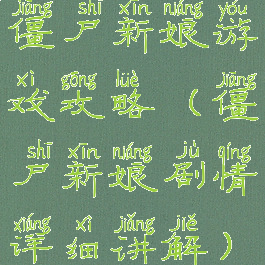 jiāng shī xīn niáng yóu
僵尸新娘游
xì gōng lüè jiāng
戏攻略（僵
shī xīn niáng jù qíng
尸新娘剧情
xiáng xì jiǎng jiě
详细讲解）